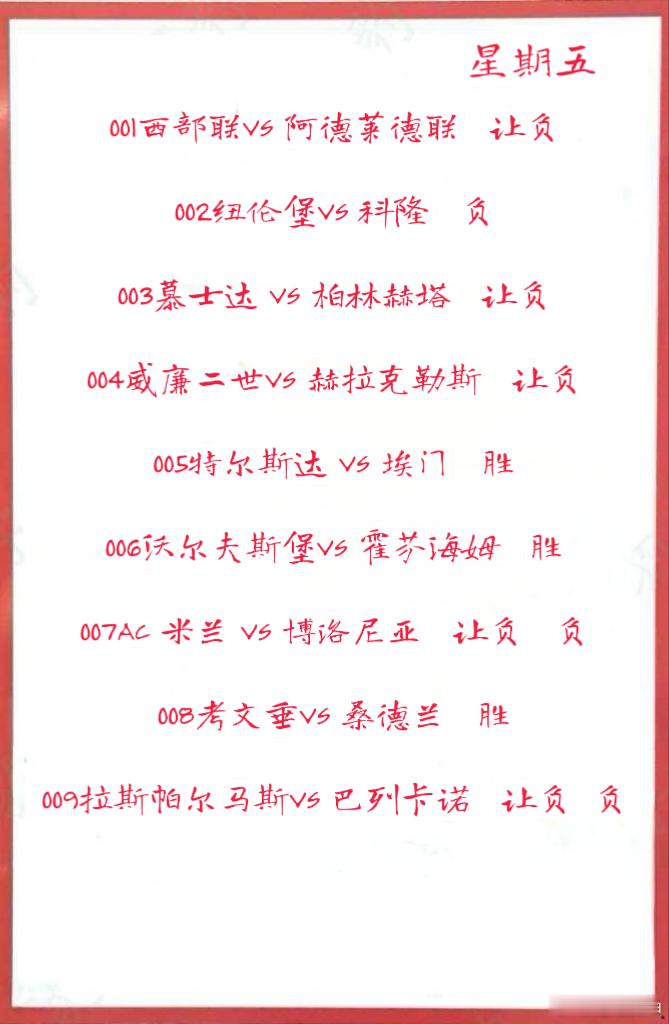 星期五
001西部联vs 阿德莱德联 让负
002纽伦堡vs 科隆 负
003慕士达 vs 柏林赫塔 让负
004威廉二世vs 赫拉克勒斯 让负
005特尔斯达 vs 埃门 胜
006沃尔夫斯堡vs 霍芬海姆 胜
007AC 米兰 vs 博洛尼亚 让负 负
008考文垂vs 桑德兰 胜
009拉斯帕尔马斯vs 巴列卡诺 让负 负